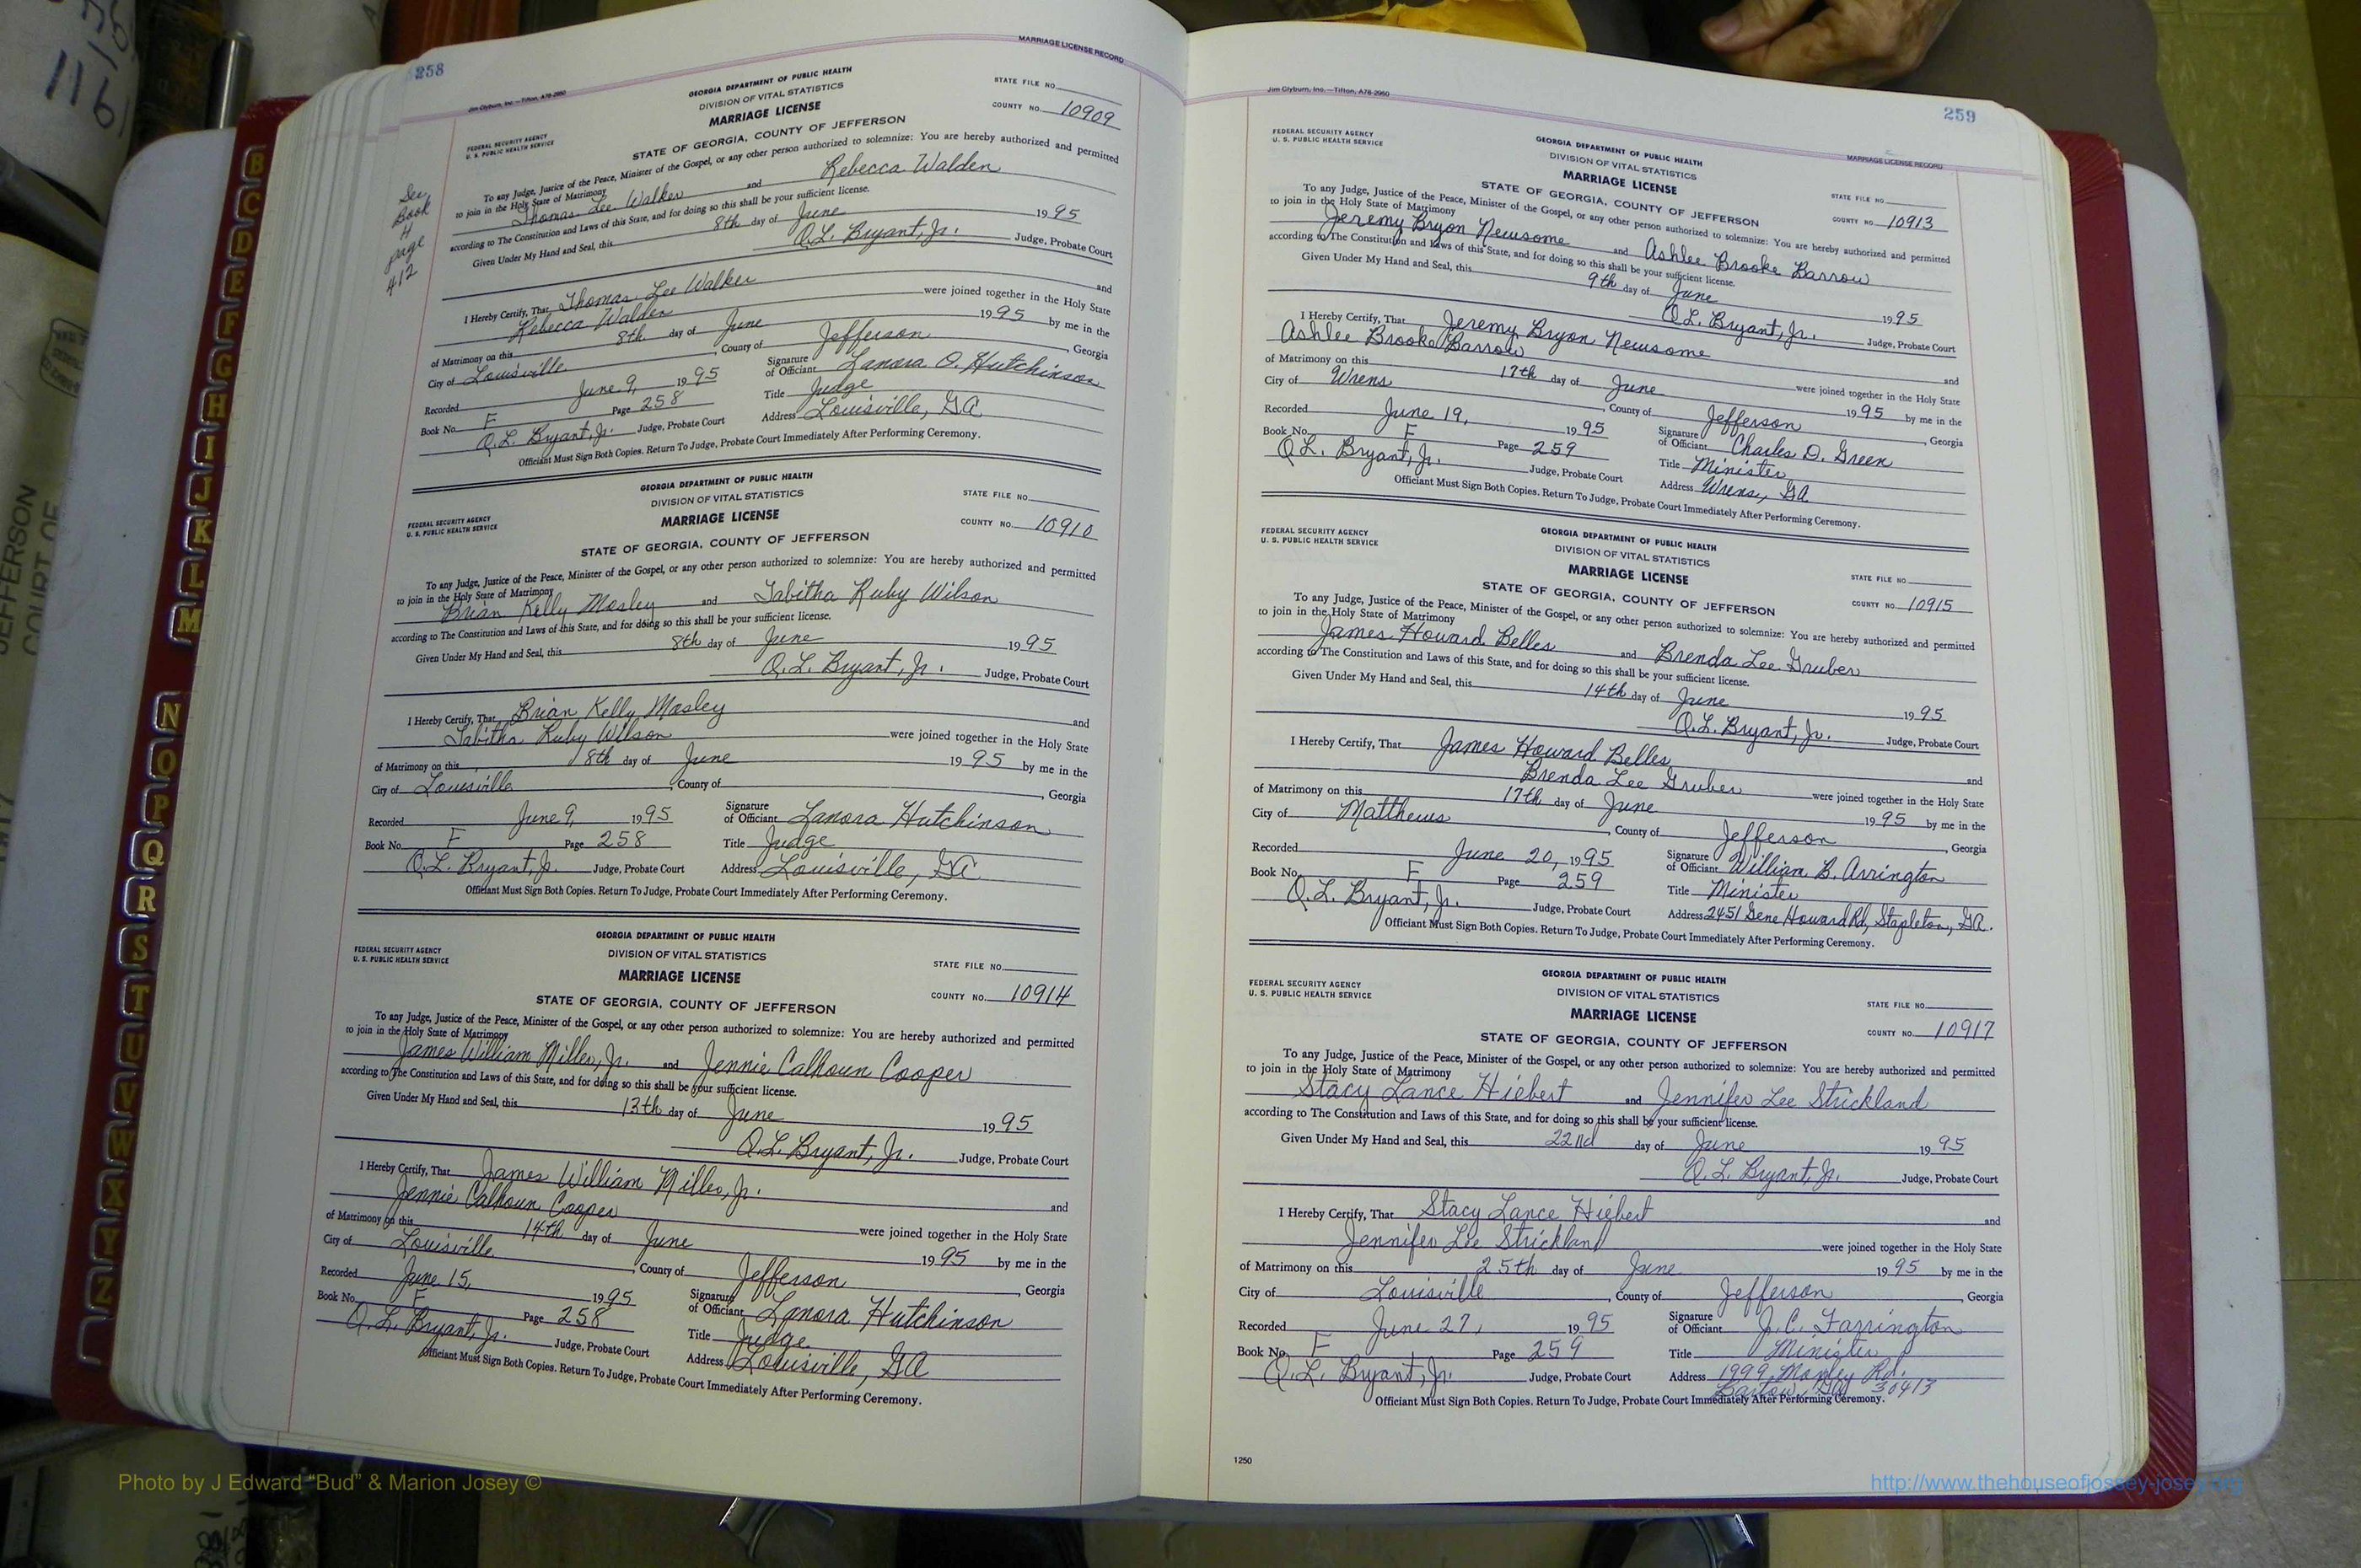 258
MARRIAGE LICENSE RECORD
Jim Clyburn, Inc.—Tifton, A78-2960
GEORGIA DEPARTMENT OF PUBLIC HEALTH
DIVISION OF VITAL STATISTICS
MARRIAGE LICENSE
STATE OF GEORGIA, COUNTY OF JEFFERSON
STATE FILE NO.
COUNTY NO. 10909
FEDERAL SECURITY AGENCY
U. S. PUBLIC HEALTH SERVICE
See
Book
H
page
412
To any Judge, Justice of the Peace, Minister of the Gospel, or any other person authorized to solemnize: You are hereby authorized and permitted
to join in the Holy State of Matrimony
Thomas Lee Walker and Rebecca Walden
according to The Constitution and Laws of this State, and for doing so this shall be your sufficient license.
Given Under My Hand and Seal, this 8th day of June 1995
Q.L. Bryant, Jr. Judge, Probate Court
I Hereby Certify, That Thomas Lee Walker and
Rebecca Walden were joined together in the Holy State
of Matrimony on this 8th day of June 1995 by me in the
City of Louisville, County of Jefferson, Georgia
Recorded June 9, 1995 Signature of Officiant Lanora O. Hutchinson
Book No. F Page 258 Title Judge
Q.L. Bryant, Jr. Judge, Probate Court Address Louisville, GA
Officiant Must Sign Both Copies. Return To Judge, Probate Court Immediately After Performing Ceremony.
GEORGIA DEPARTMENT OF PUBLIC HEALTH
DIVISION OF VITAL STATISTICS
MARRIAGE LICENSE
STATE OF GEORGIA, COUNTY OF JEFFERSON
STATE FILE NO.
COUNTY NO. 10910
FEDERAL SECURITY AGENCY
U. S. PUBLIC HEALTH SERVICE
To any Judge, Justice of the Peace, Minister of the Gospel, or any other person authorized to solemnize: You are hereby authorized and permitted
to join in the Holy State of Matrimony
Brian Kelly Mosley and Tabitha Ruby Wilson
according to The Constitution and Laws of this State, and for doing so this shall be your sufficient license.
Given Under My Hand and Seal, this 8th day of June 1995
Q.L. Bryant, Jr. Judge, Probate Court
I Hereby Certify, That Brian Kelly Mosley and
Tabitha Ruby Wilson were joined together in the Holy State
of Matrimony on this 8th day of June 1995 by me in the
City of Louisville, County of , Georgia
Recorded June 9, 1995 Signature of Officiant Lanora Hutchinson
Book No. F Page 258 Title Judge
Q.L. Bryant, Jr. Judge, Probate Court Address Louisville, GA
Officiant Must Sign Both Copies. Return To Judge, Probate Court Immediately After Performing Ceremony.
GEORGIA DEPARTMENT OF PUBLIC HEALTH
DIVISION OF VITAL STATISTICS
MARRIAGE LICENSE
STATE OF GEORGIA, COUNTY OF JEFFERSON
STATE FILE NO.
COUNTY NO. 10914
FEDERAL SECURITY AGENCY
U. S. PUBLIC HEALTH SERVICE
To any Judge, Justice of the Peace, Minister of the Gospel, or any other person authorized to solemnize: You are hereby authorized and permitted
to join in the Holy State of Matrimony
James William Miller, Jr. and Jennie Calhoun Cooper
according to The Constitution and Laws of this State, and for doing so this shall be your sufficient license.
Given Under My Hand and Seal, this 13th day of June 1995
Q.L. Bryant, Jr. Judge, Probate Court
I Hereby Certify, That James William Miller, Jr. and
Jennie Calhoun Cooper were joined together in the Holy State
of Matrimony on this 14th day of June 1995 by me in the
City of Louisville, County of Jefferson, Georgia
Recorded June 15, 1995 Signature of Officiant Lanora Hutchinson
Book No. F Page 258 Title Judge
Q.L. Bryant, Jr. Judge, Probate Court Address Louisville, GA
Officiant Must Sign Both Copies. Return To Judge, Probate Court Immediately After Performing Ceremony.
259
Jim Clyburn, Inc.—Tifton, A78-2960
MARRIAGE LICENSE RECORD
FEDERAL SECURITY AGENCY
U. S. PUBLIC HEALTH SERVICE
GEORGIA DEPARTMENT OF PUBLIC HEALTH
DIVISION OF VITAL STATISTICS
MARRIAGE LICENSE
STATE OF GEORGIA, COUNTY OF JEFFERSON
STATE FILE NO.
COUNTY NO. 10913
To any Judge, Justice of the Peace, Minister of the Gospel, or any other person authorized to solemnize: You are hereby authorized and permitted
to join in the Holy State of Matrimony
Jeremy Bryon Newsome and Ashlee Brooke Barrow
according to The Constitution and Laws of this State, and for doing so this shall be your sufficient license.
Given Under My Hand and Seal, this 9th day of June 1995
Q.L. Bryant, Jr. Judge, Probate Court
I Hereby Certify, That Jeremy Bryon Newsome and
Ashlee Brooke Barrow were joined together in the Holy State
of Matrimony on this 17th day of June 1995 by me in the
City of Wrens, County of Jefferson, Georgia
Recorded June 19, 1995 Signature of Officiant Charles D. Green
Book No. F Page 259 Title Minister
Q.L. Bryant, Jr. Judge, Probate Court Address Wrens, GA
Officiant Must Sign Both Copies. Return To Judge, Probate Court Immediately After Performing Ceremony.
FEDERAL SECURITY AGENCY
U. S. PUBLIC HEALTH SERVICE
GEORGIA DEPARTMENT OF PUBLIC HEALTH
DIVISION OF VITAL STATISTICS
MARRIAGE LICENSE
STATE OF GEORGIA, COUNTY OF JEFFERSON
STATE FILE NO.
COUNTY NO. 10915
To any Judge, Justice of the Peace, Minister of the Gospel, or any other person authorized to solemnize: You are hereby authorized and permitted
to join in the Holy State of Matrimony
James Howard Belles and Brenda Lee Gruber
according to The Constitution and Laws of this State, and for doing so this shall be your sufficient license.
Given Under My Hand and Seal, this 14th day of June 1995
Q.L. Bryant, Jr. Judge, Probate Court
I Hereby Certify, That James Howard Belles and
Brenda Lee Gruber were joined together in the Holy State
of Matrimony on this 17th day of June 1995 by me in the
City of Matthews, County of Jefferson, Georgia
Recorded June 20, 1995 Signature of Officiant William B. Arrington
Book No. F Page 259 Title Minister
Q.L. Bryant, Jr. Judge, Probate Court Address 2451 Gene Howard Rd, Stapleton, GA.
Officiant Must Sign Both Copies. Return To Judge, Probate Court Immediately After Performing Ceremony.
FEDERAL SECURITY AGENCY
U. S. PUBLIC HEALTH SERVICE
GEORGIA DEPARTMENT OF PUBLIC HEALTH
DIVISION OF VITAL STATISTICS
MARRIAGE LICENSE
STATE OF GEORGIA, COUNTY OF JEFFERSON
STATE FILE NO.
COUNTY NO. 10917
To any Judge, Justice of the Peace, Minister of the Gospel, or any other person authorized to solemnize: You are hereby authorized and permitted
to join in the Holy State of Matrimony
Stacy Lance Hiebert and Jennifer Lee Strickland
according to The Constitution and Laws of this State, and for doing so this shall be your sufficient license.
Given Under My Hand and Seal, this 22nd day of June 1995
Q.L. Bryant, Jr. Judge, Probate Court
I Hereby Certify, That Stacy Lance Hiebert and
Jennifer Lee Strickland were joined together in the Holy State
of Matrimony on this 25th day of June 1995 by me in the
City of Louisville, County of Jefferson, Georgia
Recorded June 27, 1995 Signature of Officiant J.C. Farrington
Book No. F Page 259 Title Minister
Q.L. Bryant, Jr. Judge, Probate Court Address 1999 Manley Rd.
Bartow, GA 30413
Officiant Must Sign Both Copies. Return To Judge, Probate Court Immediately After Performing Ceremony.
1250
B
C
D
E
F
G
H
I
J
K
L
M
N
O
P
Q
R
S
T
U
V
W
X
Y
Z
JEFFERSON
COURT OF
Photo by J Edward “Bud” & Marion Josey ©
http://www.thehouseofjossey-josey.org